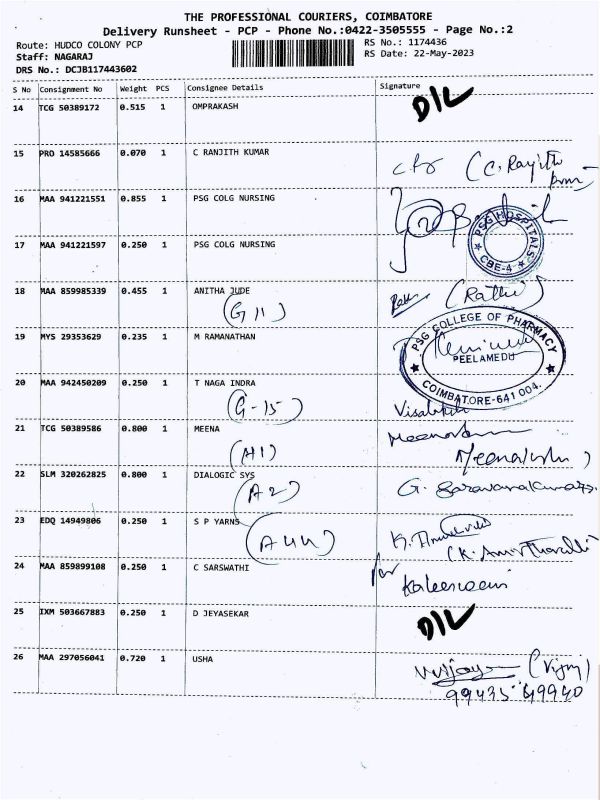 THE PROFESSIONAL COURIERS, COIMBATORE
Delivery Runsheet - PCP - Phone No.:0422-3505555 - Page No.:2
Route: HUDCO COLONY PCP
RS No.: 1174436
Staff: NAGARAJ
RS Date: 22-May-2023
DRS No.: DCJB117443602
S No Consignment No Weight PCS Consignee Details Signature
14 TCG 50389172 0.515 1 OMPRAKASH D/L
15 PRO 14585666 0.070 1 C RANJITH KUMAR
16 MAA 941221551 0.855 1 PSG COLG NURSING
PSG HOSPITALS
CBE-4
17 MAA 941221597 0.250 1 PSG COLG NURSING
18 MAA 859985339 0.455 1 ANITHA JUDE (Rathi)
(G11)
19 MYS 29353629 0.235 1 M RAMANATHAN
PSG COLLEGE OF PHARMACY
PEELAMEDU
COIMBATORE-641 004.
20 MAA 942450209 0.250 1 T NAGA INDRA
(G-15)
21 TCG 50389586 0.800 1 MEENA
(A1)
22 SLM 320262825 0.800 1 DIALOGIC SYS
(A2)
23 EDQ 14949806 0.250 1 S P YARNS
(A44)
24 MAA 859899108 0.250 1 C SARSWATHI
for
25 IXM 503667883 0.250 1 D JEYASEKAR D/L
26 MAA 297056041 0.720 1 USHA